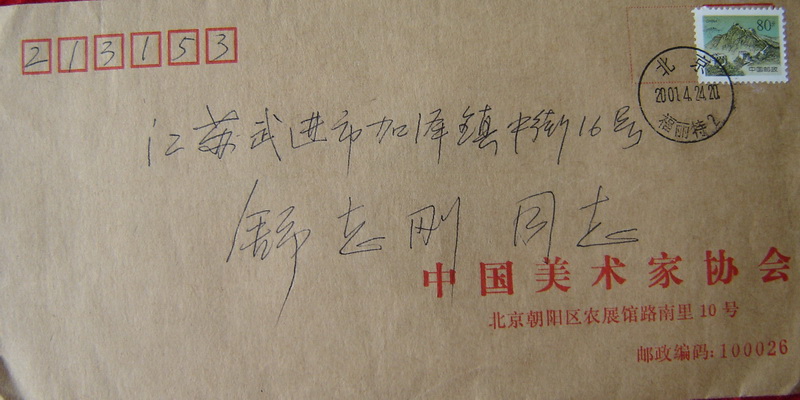 213153
80分
中国邮政
北京
2001.4.24.20
福丽特2
江苏武进市加泽镇中街16号
舒志刚 同志
中国美术家协会
北京朝阳区农展馆路南里10号
邮政编码:100026